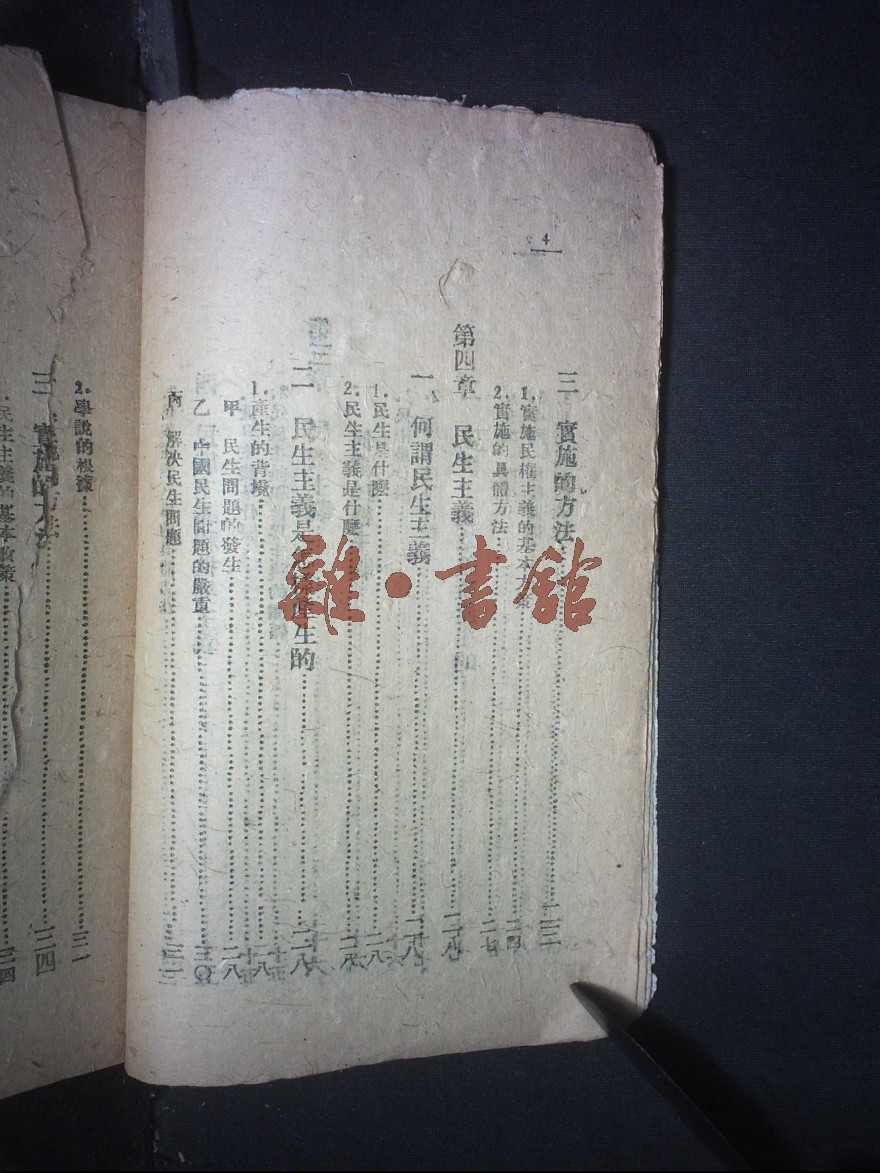 4
三 實施的方法……二三
1.實施民權主義的基本……二四
2.實施的具體方法……二七
第四章 民生主義……二八
一 何謂民生主義……二八
1.民生是什麼……二八
2.民生主義是什麼……二八
二 民生主義是產生的……二八
1.產生的背境……二八
甲 民生問題的發生……二八
乙 中國民生問題的嚴重……三〇
丙 解決民生問題……三一
2.學說的根據……三一
三 實施的方法……三四
1.民生主義的基本政策……三四
雜·書館